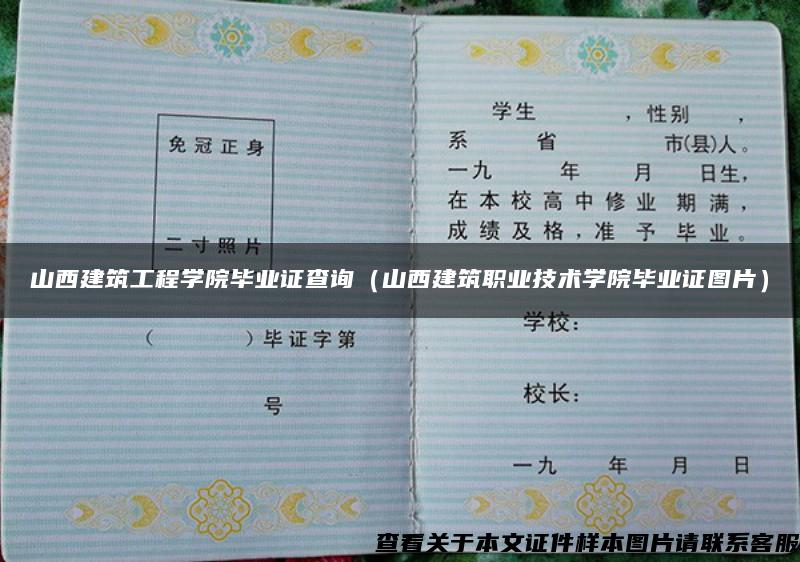 免冠正身
二寸照片
（ ）毕证字第
号
学生 ，性别 ，
系 省 市(县)人。
一九 年 月 日生，
在本校高中修业 期满，
成绩及格，准予毕业。
山西建筑工程学院毕业证查询（山西建筑职业技术学院毕业证图片）
学校：
校长：
一九 年 月 日
查看关于本文证件样本图片请联系客服